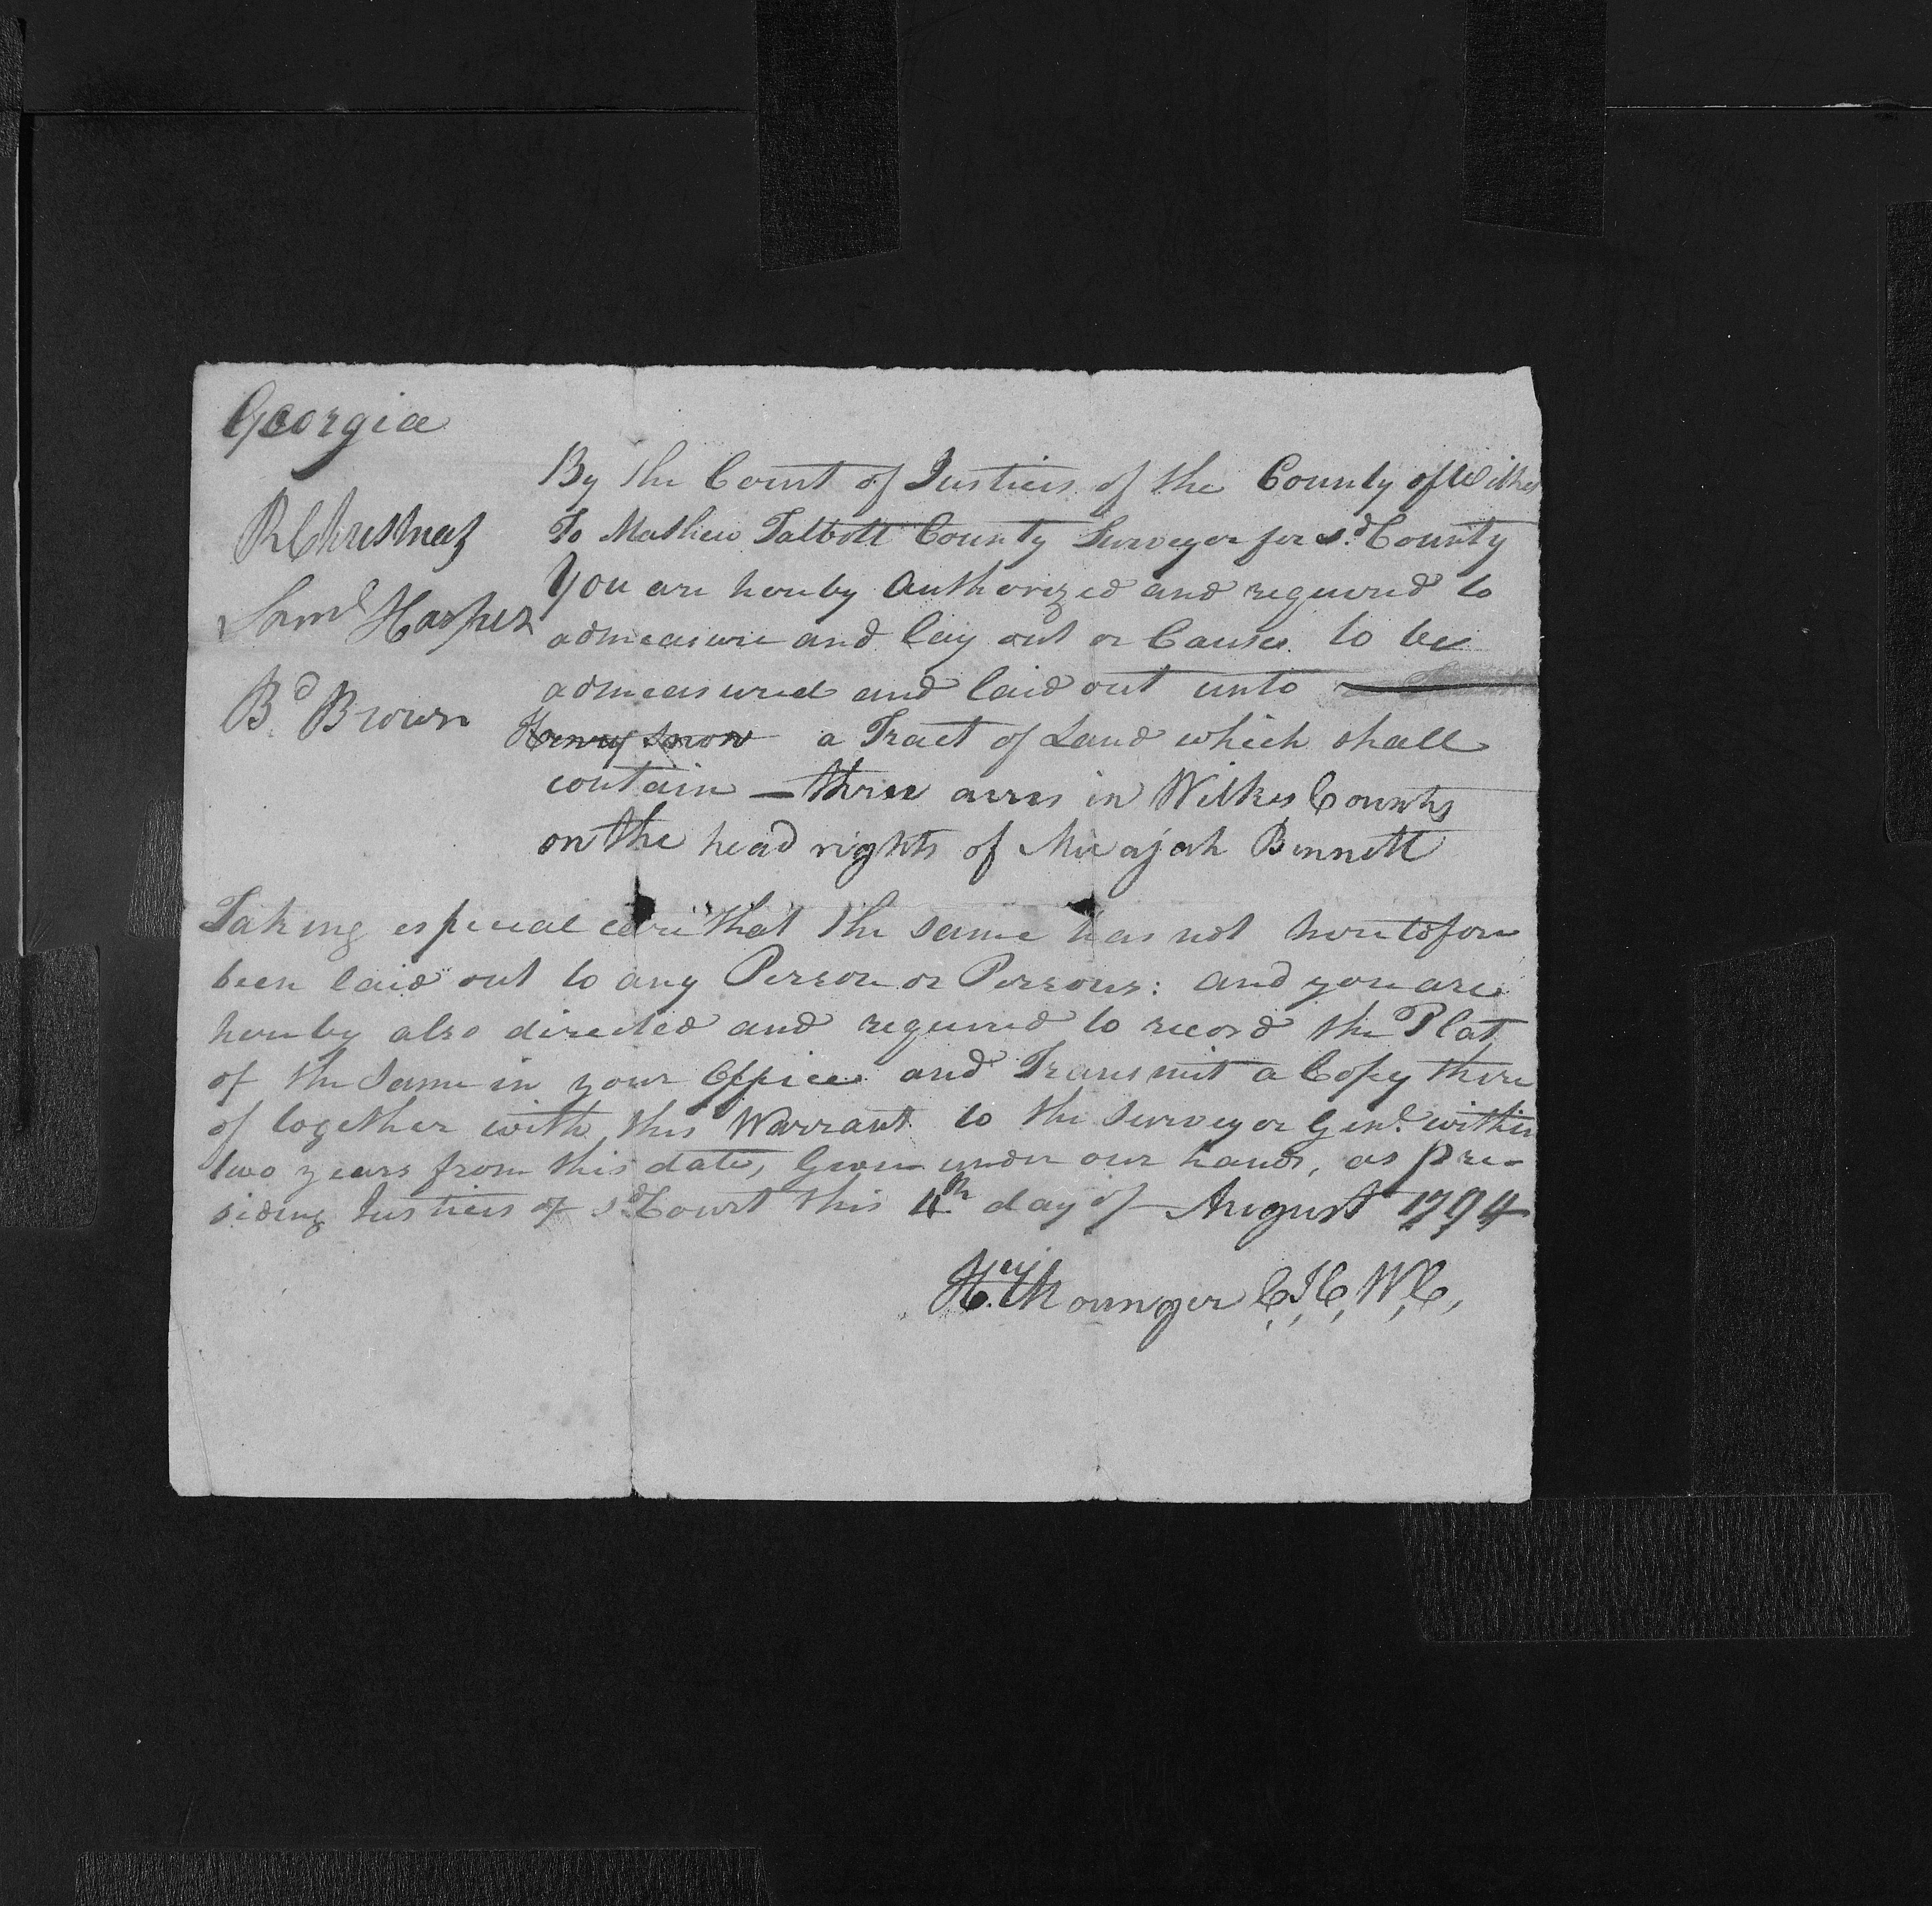 Georgia
R Christmas
Saml Harper
Bd Brown
By the Court of Justices of the County of Wilkes
To Mathew Talbott County Surveyor for sd. County
You are hereby Authorized and required to
admeasure and lay out or Cause to be
admeasured and laid out unto
Henry Snow a Tract of Land which shall
contain three acres in Wilkes County
on the head rights of Micajah Bennett
Taking especial care that the same has not heretofore
been laid out to any Person or Persons: and you are
hereby also directed and required to record the Plat
of the Same in your Office and Transmit a Copy there
of together with this Warrant to the Surveyor Genl. within
two years from this date, Given under our hands, as pre-
siding Justices of sd. Court this 4th day of August 1794
Hey. Mounger C,I,C,W,C,